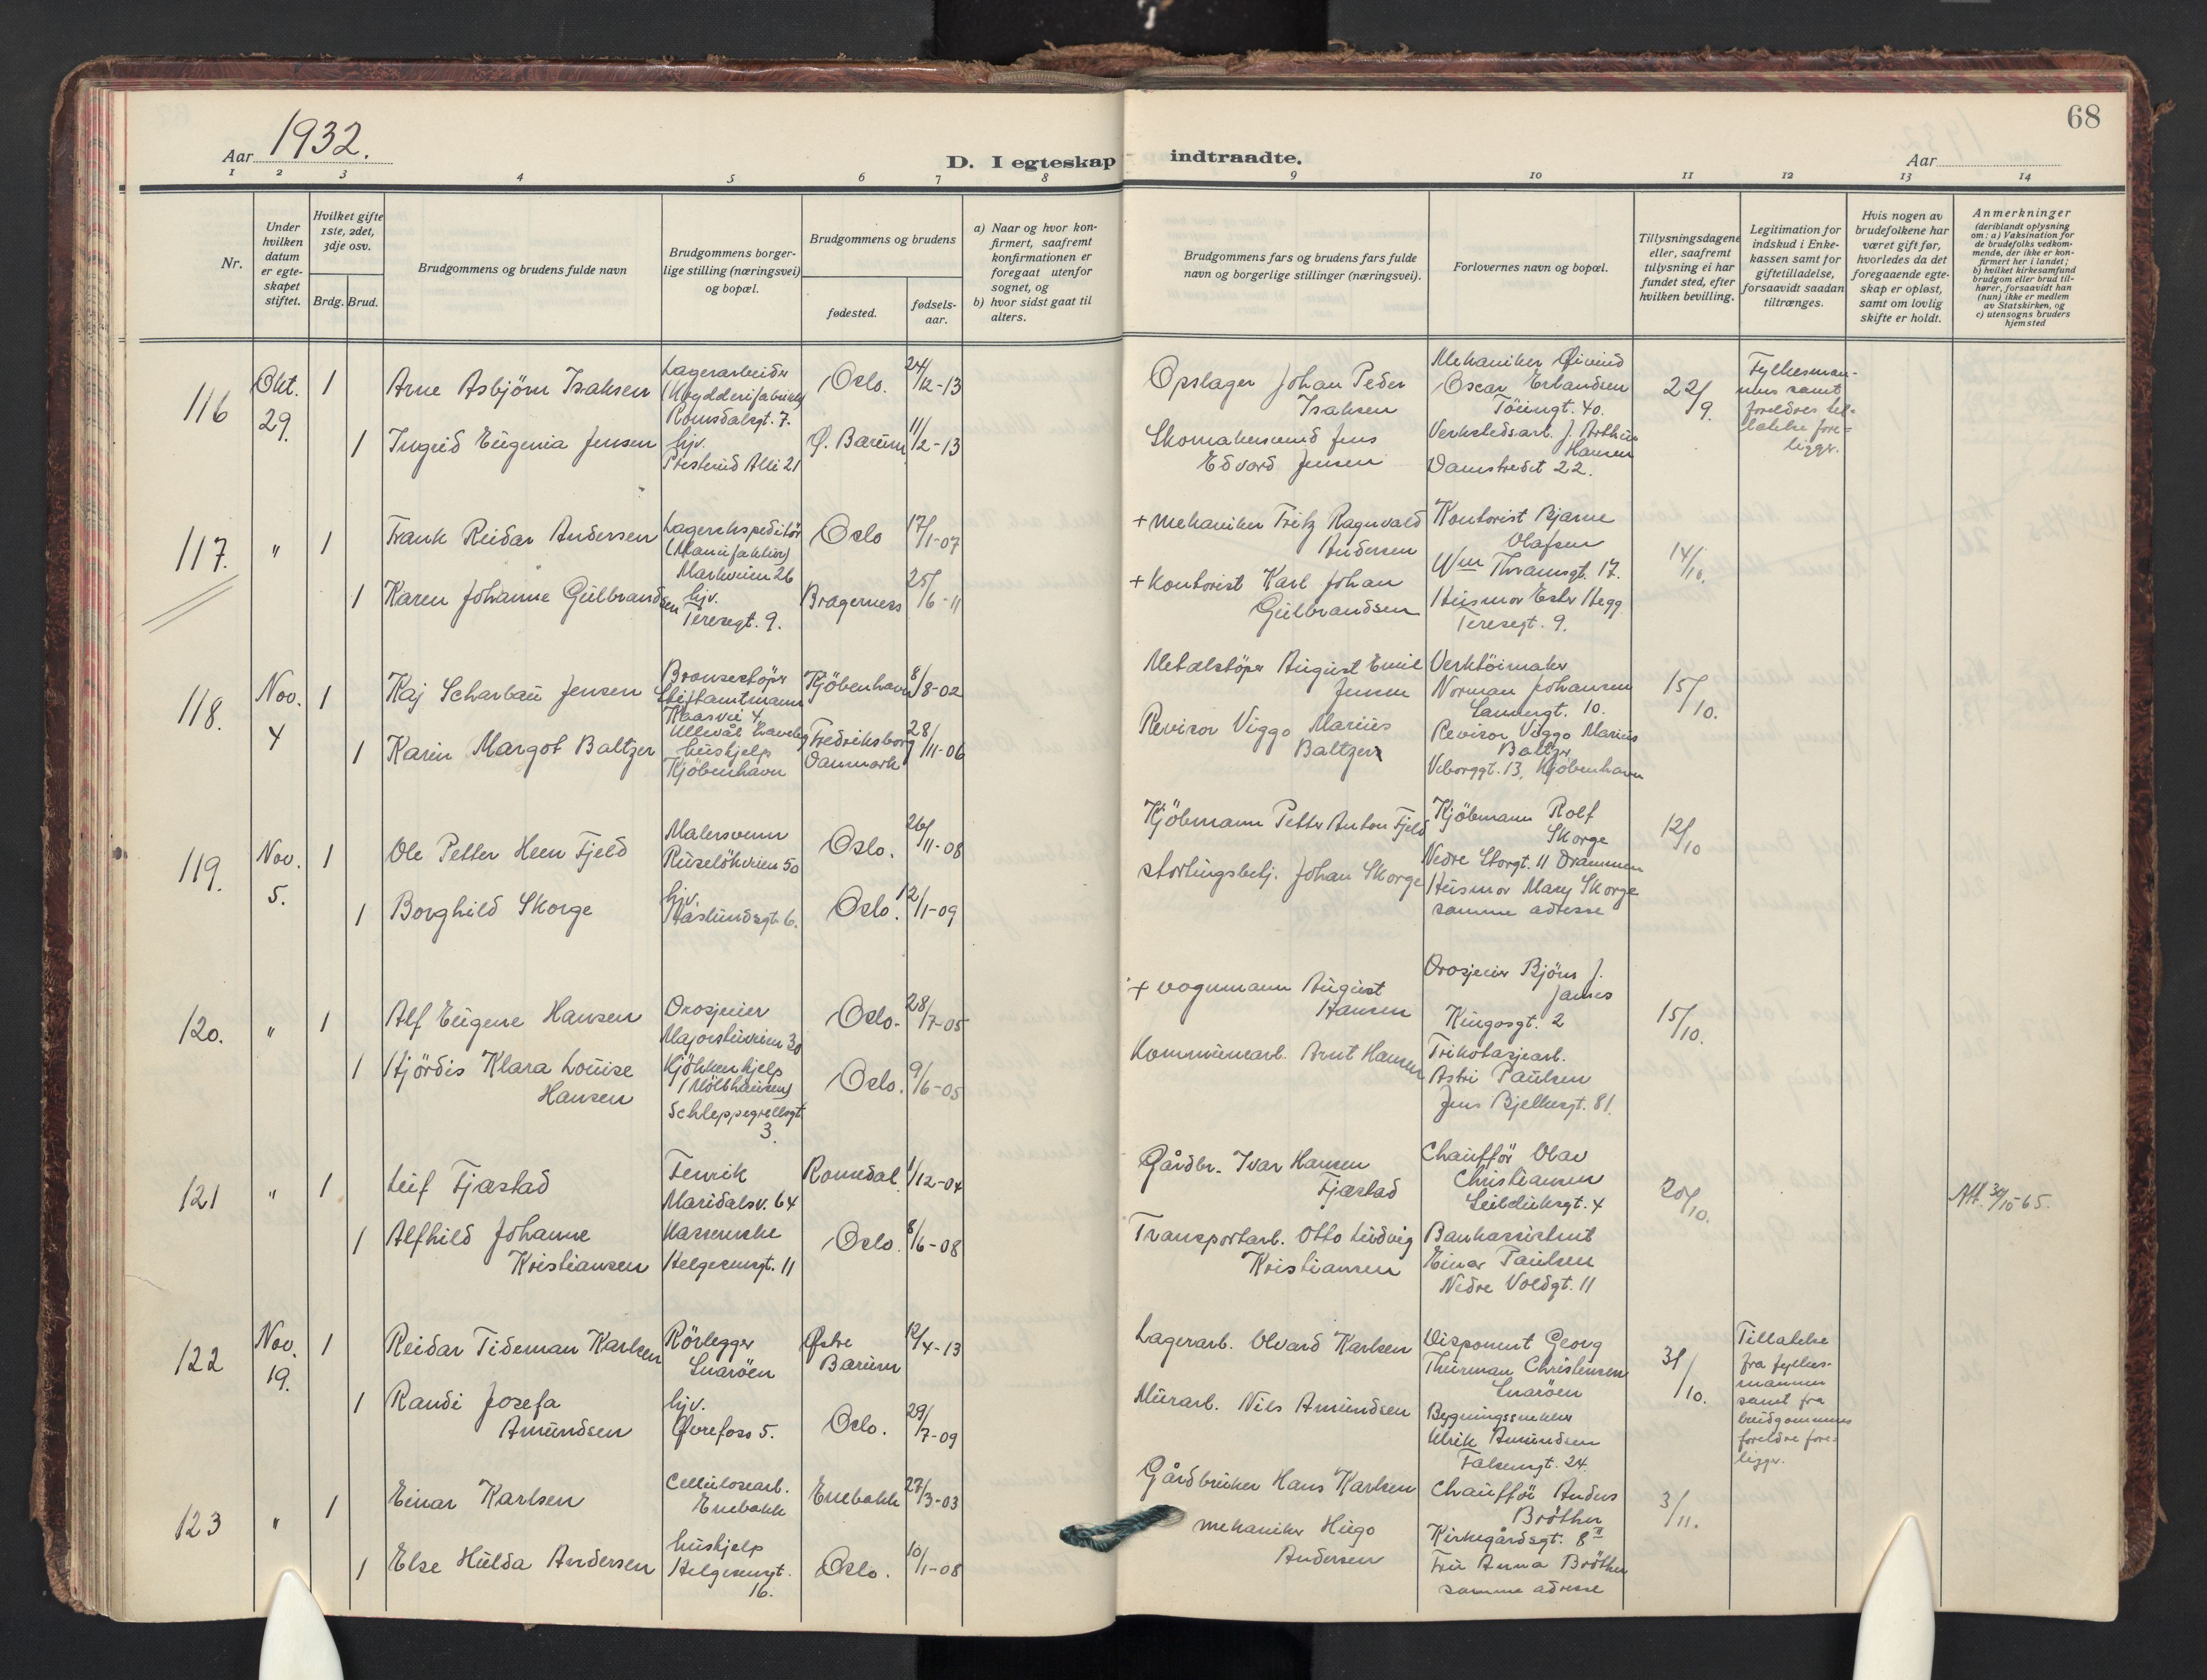 68
Aar 1932.
D. I egteskap indtraadte.
Aar
1 2 3 4 5 6 7 8 9 10 11 12 13 14
Nr.
Under hvilken datum er egteskapet stiftet.
Hvilket gifte 1ste, 2det, 3dje osv.
Brdg. Brud.
Brudgommens og brudens fulde navn
Brudgommens borgerlige stilling (næringsvei) og bopæl.
Brudgommens og brudens
fødested.
fødselsaar.
a) Naar og hvor konfirmert, saafremt konfirmationen er foregaat utenfor sognet, og
b) hvor sidst gaat til alters.
Brudgommens fars og brudens fars fulde navn og borgerlige stillinger (næringsvei).
Forlovernes navn og bopæl.
Tillysningsdagene eller, saafremt tillysning ei har fundet sted, efter hvilken bevilling.
Legitimation for indskud i Enkekassen samt for giftetilladelse, forsaavidt saadan tiltrænges.
Hvis nogen av brudefolkene har været gift før, hvorledes da det foregaaende egteskap er opløst, samt om lovlig skifte er holdt.
Anmerkninger (deriblandt oplysning om: a) Vaksination for de brudefolks vedkommende, der ikke er konfirmert her i landet; b) hvilket kirkesamfund brudgom eller brud tilhører, forsaavidt han (hun) ikke er medlem av Statskirken, og c) utensogns bruders hjemsted
116
Okt. 29.
1
Arne Asbjörn Isaksen
Lagerarbeider
Romsdalsgt. 7.
Oslo.
24/12-13
Opslager Johan Peder
Isaksen
Mekaniker Øivind
Oscar Erlandsen
Töiengt. 40.
22/9.
Fylkesman-
nens samt
foreldres til-
latelse fore-
ligger.
1
Ingrid Eugenia Jensen
hjv.
Alle 21
Ø. Bærum
11/2-13
Skomakersvend Jens
Edvard Jensen
Verkstedsarb. J. Arthur
Hansen
Damstredet 22.
117.
"
1
Frank Reidar Andersen
Lagerekspeditör
(Manufaktur)
Markveien 26
Oslo
17/1-07
+ mekaniker Fritz Ragnvald
Andersen
Kontorist Bjarne
Olafsen
Wm Thranesgt. 17.
14/10.
1
Karen Johanne Gulbrandsen
hjv.
Teresegt. 9.
Bragerness
25/6-11
+ kontorist Karl Johan
Gulbrandsen
Husmor Ester Hegg
Teresegt. 9.
118.
Nov. 4
1
Kaj Scharbau Jensen
Bronsestöper
Stiftamtmann
Kaasvei 4.
Ullevål Haveby
Kjöbenhavn
8/8-02
Metalstöper August Emil
Jensen
Verktöimaker
Norman Johansen
10.
15/10.
1
Karin Margot Baltzer
hushjelp
Kjöbenhavn
Fredriksborg
Danmark
28/11-06
Revisor Viggo Marius
Baltzer
Revisor Viggo Marius
Baltzer
Viborggt. 13, Kjöbenhavn
119.
Nov. 5.
1
Ole Petter Heen Fjeld
Malersvenn
Ruselökveien 50
Oslo.
26/11-08
Kjöbmann Petter Anton Fjeld
Kjöbmann Rolf
Skorge
Nedre Storgt. 11 Drammen
12/10
1
Borghild Skorge
hjv.
Haslundsgt. 6.
Oslo.
12/1-09
stortingsbetj. Johan Skorge
Husmor Mary Skorge
samme adresse
120.
"
1
Alf Eugene Hansen
Drosjeeier
Majorstuveien 30
Oslo.
28/7-05
+ vognmann August
Hansen
Drosjeeier Björn J.
James
Kingosgt. 2
15/10.
1
Hjördis Klara Louise
Hansen
Kjökkenhjelp
(Mölhausen)
Schleppegrellsgt.
3.
Oslo.
9/6-05
Kommunearb. Arnt Hansen
Trikotasjearb.
Astri Paulsen
Jens Bjelkesgt. 81.
121
"
1
Leif Fjæstad
Fenrik
Maridalsv. 64
Romedal
1/12-04
Gårdbr. Ivar Hansen
Fjæstad
Chaufför Olav
Christiansen
Seilduksgt. 4
20/10.
Att. 30/10-65.
1
Alfhild Johanne
Kristiansen
Kasserske
Helgesensgt. 11
Oslo.
8/6-08
Transportarb. Otto Ludvig
Kristiansen
Bankassistent
Einar Paulsen
Nedre Voldgt. 11
122
Nov. 19.
1
Reidar Tideman Karlsen
Rörlegger
Snaröen
Østre
Bærum
12/4-13
Lagerarb. Olvard Karlsen
Disponent Georg
Thurman Christensen
Snaröen
31/10.
Tillatelse
fra fylkes-
mannen
samt fra
brudgommens
foreldre fore-
ligger.
1
Randi Josefa
Amundsen
hjv.
Øvrefoss 5.
Oslo.
29/7-09
Murarb. Nils Amundsen
Bygningssnekker
Ulrik Amundsen
Falsensgt. 24.
123
"
1
Einar Karlsen
Cellulosearb.
Enebakk
Enebakk
27/3-03
Gårdbruker Hans Karlsen
Chaufför Anders
Bröther
Kirkegårdsgt. 8 II
3/11.
1
Else Hulda Andersen
hushjelp
Helgesensgt.
16.
Oslo.
10/1-08
mekaniker Hugo
Andersen
Fru Anna Bröther
samme adresse